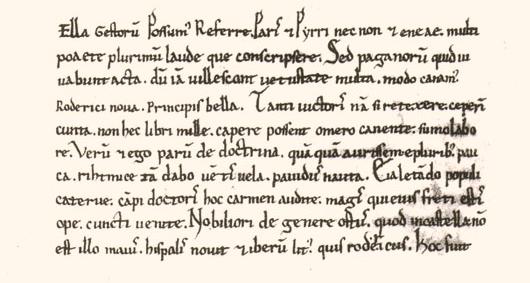 Ella gestorũ possum᷒ referre. Paris ⁊ pyrri nec non ⁊ eneae. multi
poaete plurimũ laude que conscripsere. Sed paganorũ quid iu
uabunt acta. dũ iã uillescant uetustate multa. modo canam᷒
Roderici noua. principis bella. Tanti uictoris nã si retexere. ceperĩ
cunta. non hec libri mille. capere possent omero canente. sumo labo
re. Verũ ⁊ ego parũ de doctrina. quãquã aurissem e pluribus. pau
ca. rihtmice tã dabo uẽtis uela. pauidus nauta. Eia letãdo populi
caterue. cãpi doctoris hoc carmen audite. magis qui eius freti estis
ope. cuncti uenite. Nobiliori de genere ortus. quod in castella nõ
est illo maius. hispalis nouit ⁊ iberũ litus quis rodericus. Hoc fuit